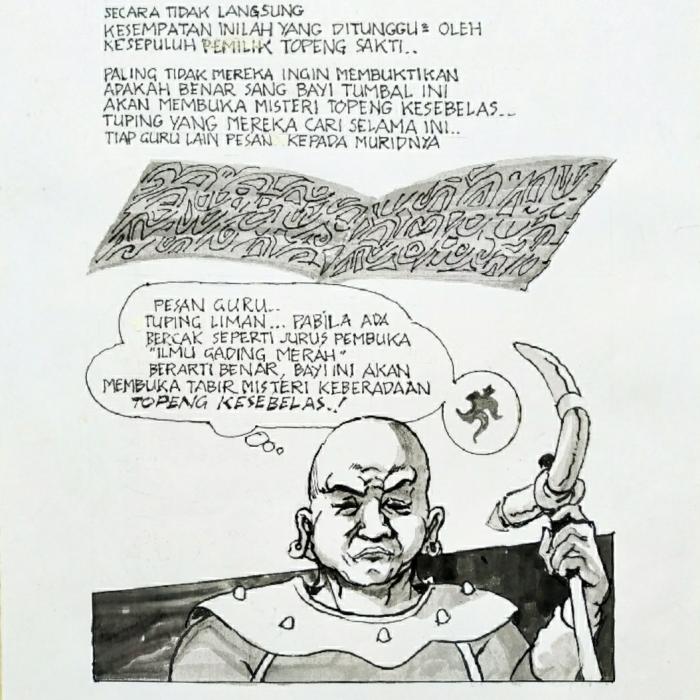 SECARA TIDAK LANGSUNG
KESEMPATAN INILAH YANG DITUNGGU² OLEH
KESEPULUH PEMILIK TOPENG SAKTI..
PALING TIDAK MEREKA INGIN MEMBUKTIKAN
APAKAH BENAR SANG BAYI TUMBAL INI
AKAN MEMBUKA MISTERI TOPENG KESEBELAS...
TUPING YANG MEREKA CARI SELAMA INI..
TIAP GURU LAIN PESAN KEPADA MURIDNYA
PESAN GURU...
TUPING LIMAN... PABILA ADA
BERCAK SEPERTI JURUS PEMBUKA
"ILMU GADING MERAH"
BERARTI BENAR, BAYI INI AKAN
MEMBUKA TABIR MISTERI KEBERADAAN
TOPENG KESEBELAS..!